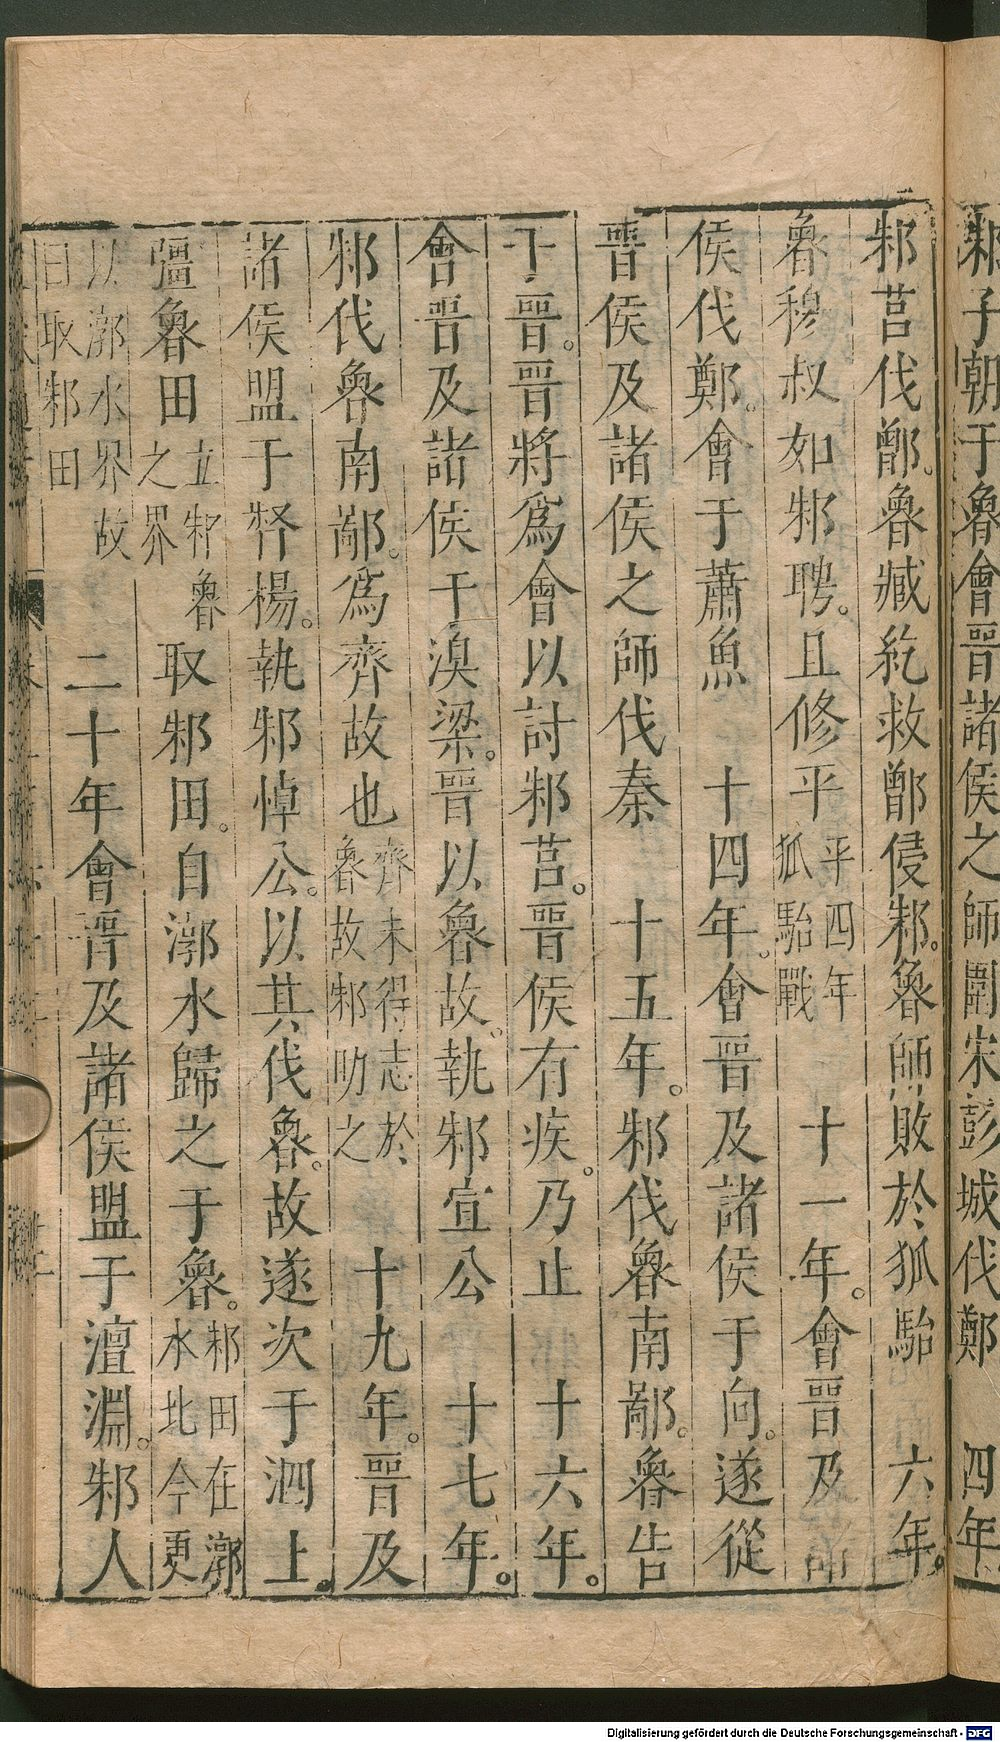 邾子朝于魯會晉諸侯之師圍宋彭城伐鄭　四年
邾莒伐鄫。魯臧紇救鄫侵邾。魯師敗於狐駘　六年。
魯穆叔如邾聘。且修平平四年狐駘戰　十一年。會晉及
侯伐鄭。會于蕭魚　十四年。會晉及諸侯于向。遂從
晉侯及諸侯之師伐秦　十五年。邾伐魯南鄙。魯告
于晉。晉將爲會以討邾莒。晉侯有疾。乃止　十六年。
會晉及諸侯于溴梁。晉以魯故。執邾宣公　十七年。
邾伐魯南鄙。爲齊故也齊未得志於魯故邾助之　十九年。晉及
諸侯盟于督楊。執邾悼公。以其伐魯。故遂次于泗上。
彊魯田立邾魯之界　取邾田。自漷水歸之于魯。邾田在漷水北今更
以漷水界故曰取邾田　二十年會晉及諸侯盟于澶淵。邾人
Digitalisierung gefördert durch die Deutsche Forschungsgemeinschaft - DFG